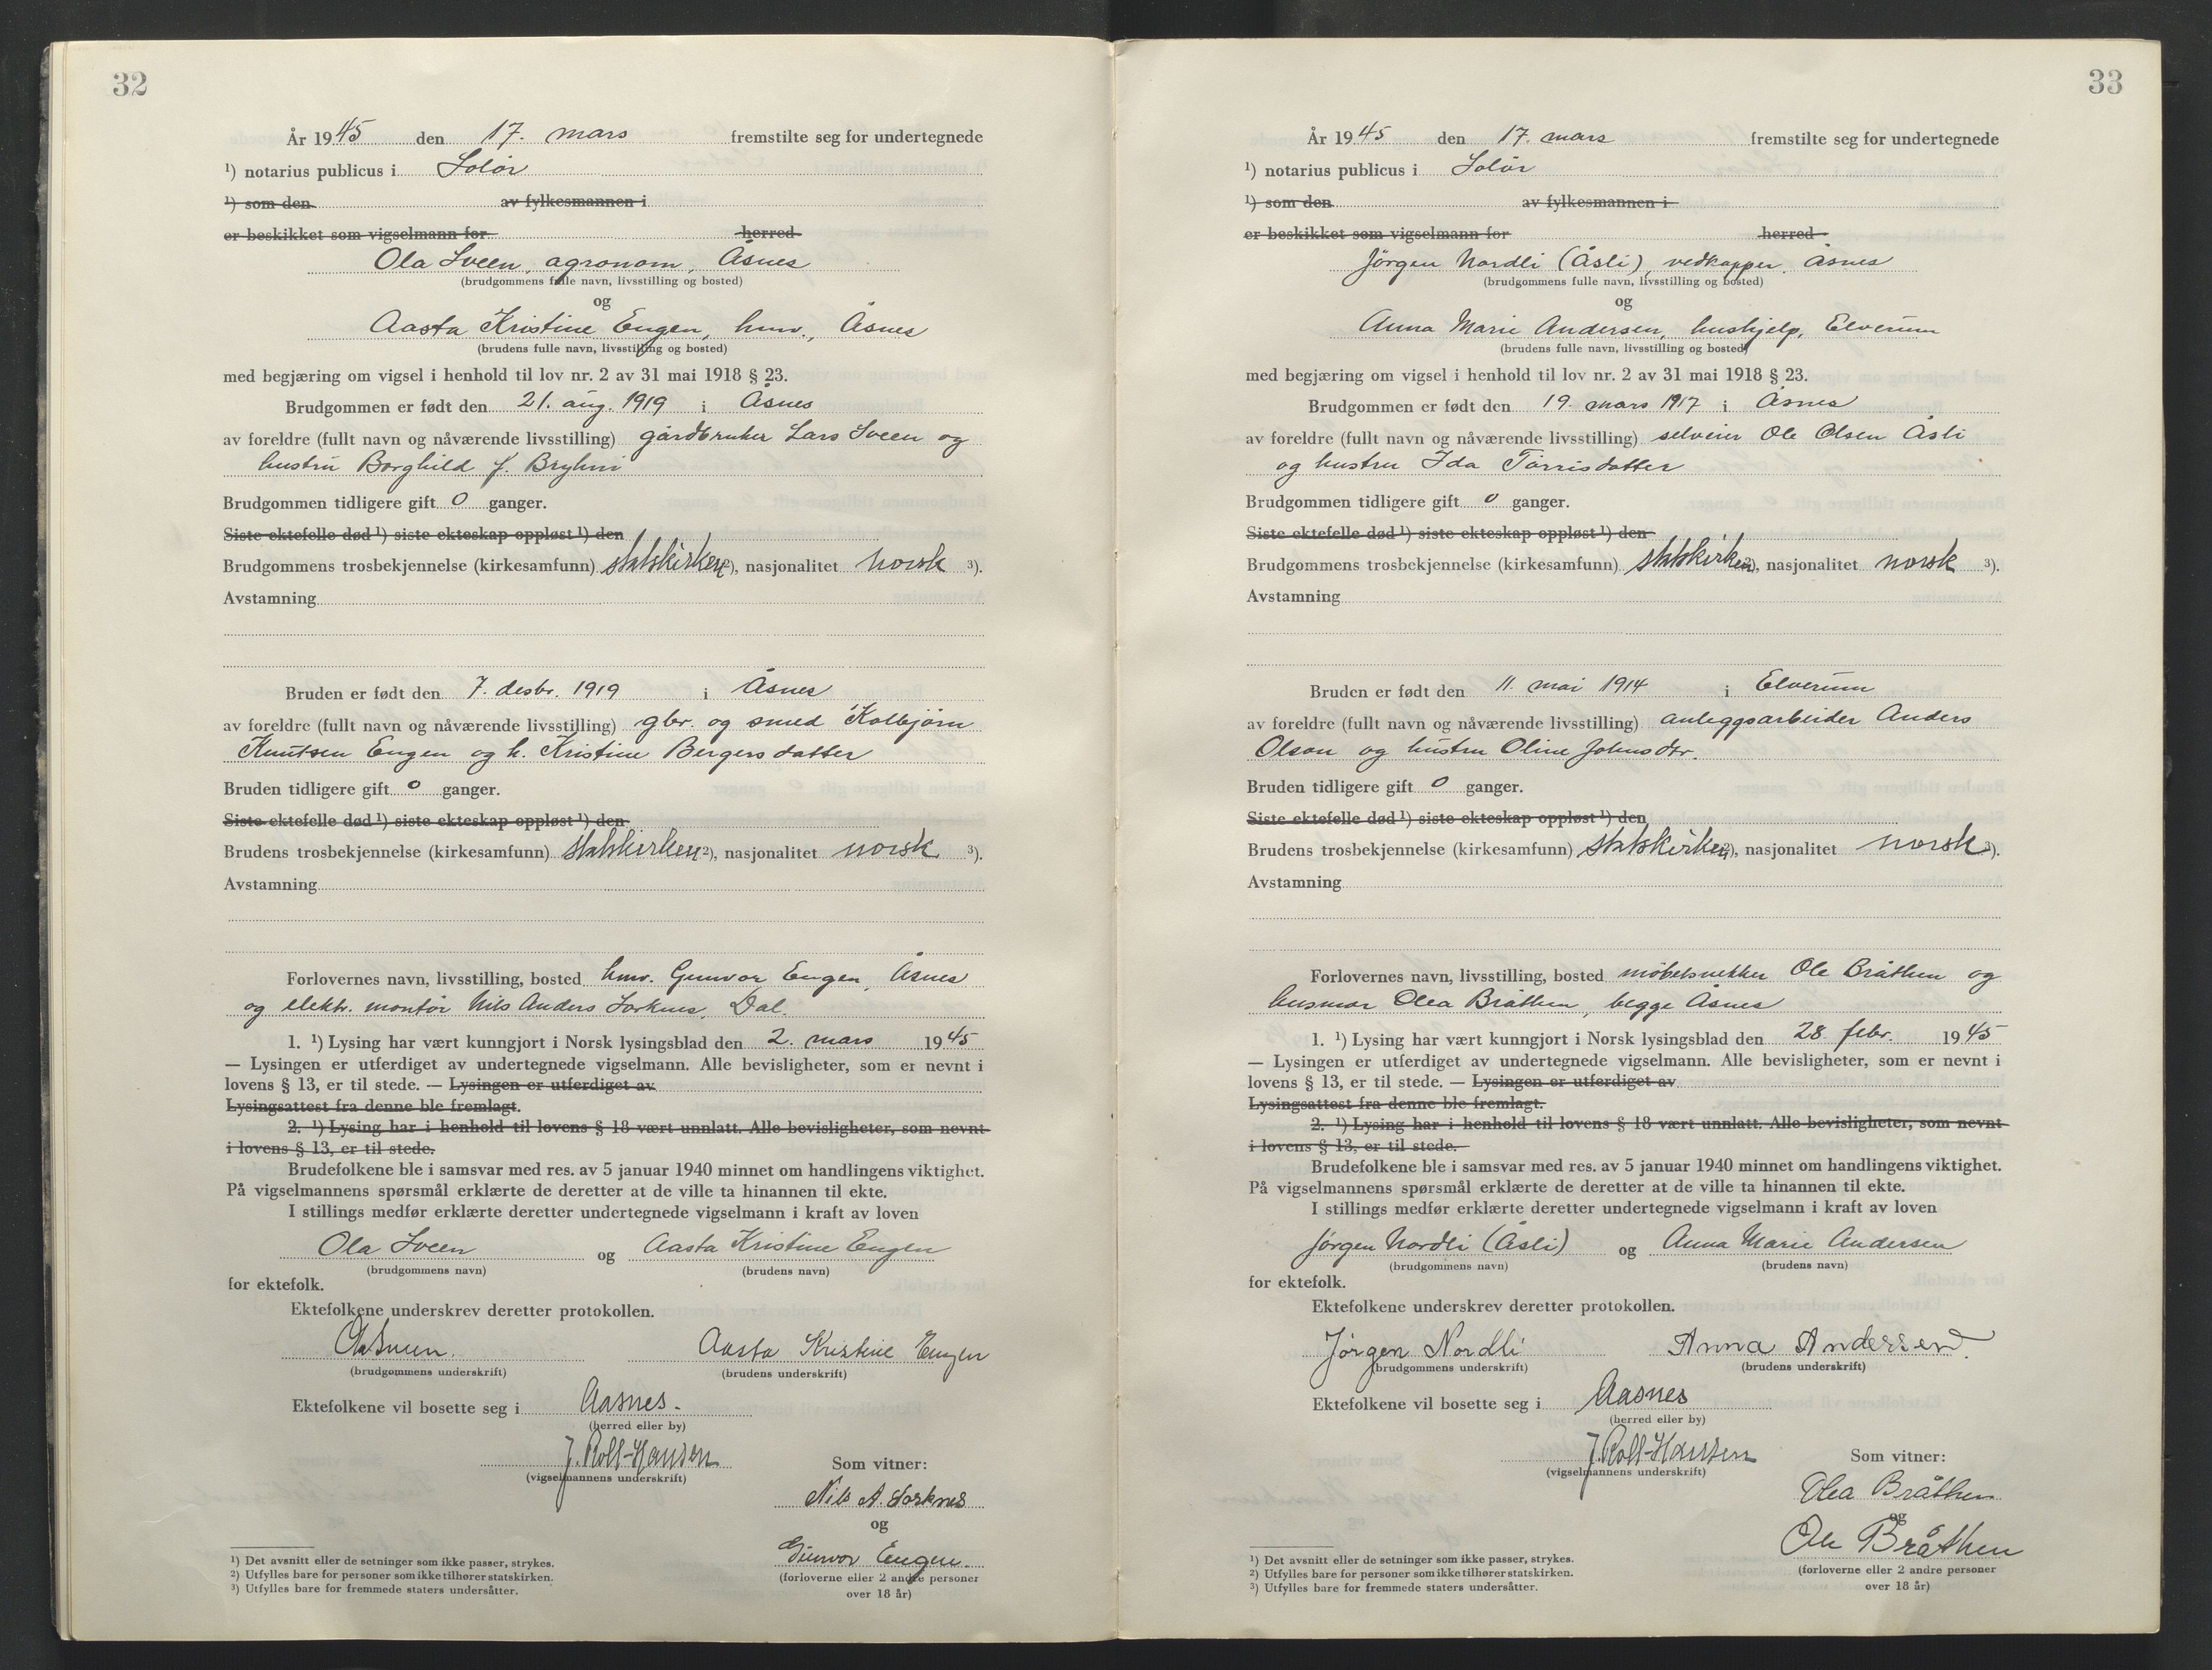 32
År 1945 den 17. mars fremstilte seg for undertegnede
¹) notarius publicus i Solør
¹) som den av fylkesmannen i
er beskikket som vigselmann for herred
Ola Sveen, agronom, Åsnes
(brudgommens fulle navn, livsstilling og bosted)
og
Aasta Kristine Engen, hmv., Åsnes
(brudens fulle navn, livsstilling og bosted)
med begjæring om vigsel i henhold til lov nr. 2 av 31 mai 1918 § 23.
Brudgommen er født den 21. aug. 1919 i Åsnes
av foreldre (fullt navn og nåværende livsstilling) gårdbruker Lars Sveen og
hustru Borghild f. Bryhni
Brudgommen tidligere gift 0 ganger.
Siste ektefelle død ¹) siste ekteskap oppløst ¹) den
Brudgommens trosbekjennelse (kirkesamfunn) statskirken ²), nasjonalitet norsk ³).
Avstamning
Bruden er født den 7. desbr. 1919 i Åsnes
av foreldre (fullt navn og nåværende livsstilling) gbr. og smed Kolbjørn
Knutsen Engen og h. Kristine Bergersdatter
Bruden tidligere gift 0 ganger.
Siste ektefelle død ¹) siste ekteskap oppløst ¹) den
Brudens trosbekjennelse (kirkesamfunn) statskirken ²), nasjonalitet norsk ³).
Avstamning
Forlovernes navn, livsstilling, bosted hmv. Gunvor Engen, Åsnes
og elektr. montør Nils Anders Sorknes, Dal.
1. ¹) Lysing har vært kunngjort i Norsk lysingsblad den 2. mars 1945
— Lysingen er utferdiget av undertegnede vigselmann. Alle bevisligheter, som er nevnt i
lovens § 13, er til stede. — Lysingen er utferdiget av
Lysingsattest fra denne ble fremlagt.
2. ¹) Lysing har i henhold til lovens § 18 vært unnlatt. Alle bevisligheter, som nevnt
i lovens § 13, er til stede.
Brudefolkene ble i samsvar med res. av 5 januar 1940 minnet om handlingens viktighet.
På vigselmannens spørsmål erklærte de deretter at de ville ta hinannen til ekte.
I stillings medfør erklærte deretter undertegnede vigselmann i kraft av loven
Ola Sveen og Aasta Kristine Engen
(brudgommens navn) (brudens navn)
for ektefolk.
Ektefolkene underskrev deretter protokollen.
Ola Sveen. Aasta Kristine Engen
(brudgommens underskrift) (brudens underskrift)
Ektefolkene vil bosette seg i Aasnes.
(herred eller by)
J. Roll-Hansen
(vigselmannens underskrift)
Som vitner:
Nils A. Sorknes
og
Gunvor Engen.
(forloverne eller 2 andre personer
over 18 år)
¹) Det avsnitt eller de setninger som ikke passer, strykes.
²) Utfylles bare for personer som ikke tilhører statskirken.
³) Utfylles bare for fremmede staters undersåtter.
33
År 1945 den 17. mars fremstilte seg for undertegnede
¹) notarius publicus i Solør
¹) som den av fylkesmannen i
er beskikket som vigselmann for herred
Jörgen Nordli (Åsli), vedkapper, Åsnes
(brudgommens fulle navn, livsstilling og bosted)
og
Anna Marie Andersen, hushjelp, Elverum
(brudens fulle navn, livsstilling og bosted)
med begjæring om vigsel i henhold til lov nr. 2 av 31 mai 1918 § 23.
Brudgommen er født den 19. mars 1917 i Åsnes
av foreldre (fullt navn og nåværende livsstilling) selveier Ole Olsen Åsli
og hustru Ida Tørrisdatter
Brudgommen tidligere gift 0 ganger.
Siste ektefelle død ¹) siste ekteskap oppløst ¹) den
Brudgommens trosbekjennelse (kirkesamfunn) statskirken ²), nasjonalitet norsk ³).
Avstamning
Bruden er født den 11. mai 1914 i Elverum
av foreldre (fullt navn og nåværende livsstilling) anleggsarbeider Anders
Olsen og hustru Oline Johnsdtr.
Bruden tidligere gift 0 ganger.
Siste ektefelle død ¹) siste ekteskap oppløst ¹) den
Brudens trosbekjennelse (kirkesamfunn) statskirken ²), nasjonalitet norsk ³).
Avstamning
Forlovernes navn, livsstilling, bosted møbelsnekker Ole Bråthen og
husmor Olea Bråthen, begge Åsnes
1. ¹) Lysing har vært kunngjort i Norsk lysingsblad den 28 febr. 1945
— Lysingen er utferdiget av undertegnede vigselmann. Alle bevisligheter, som er nevnt i
lovens § 13, er til stede. — Lysingen er utferdiget av
Lysingsattest fra denne ble fremlagt.
2. ¹) Lysing har i henhold til lovens § 18 vært unnlatt. Alle bevisligheter, som nevnt
i lovens § 13, er til stede.
Brudefolkene ble i samsvar med res. av 5 januar 1940 minnet om handlingens viktighet.
På vigselmannens spørsmål erklærte de deretter at de ville ta hinannen til ekte.
I stillings medfør erklærte deretter undertegnede vigselmann i kraft av loven
Jörgen Nordli (Åsli) og Anna Marie Andersen
(brudgommens navn) (brudens navn)
for ektefolk.
Ektefolkene underskrev deretter protokollen.
Jörgen Nordli Anna Andersen.
(brudgommens underskrift) (brudens underskrift)
Ektefolkene vil bosette seg i Aasnes
(herred eller by)
J. Roll-Hansen
(vigselmannens underskrift)
Som vitner:
Olea Bråthen
og
Ole Bråthen
(forloverne eller 2 andre personer
over 18 år)
¹) Det avsnitt eller de setninger som ikke passer, strykes.
²) Utfylles bare for personer som ikke tilhører statskirken.
³) Utfylles bare for fremmede staters undersåtter.